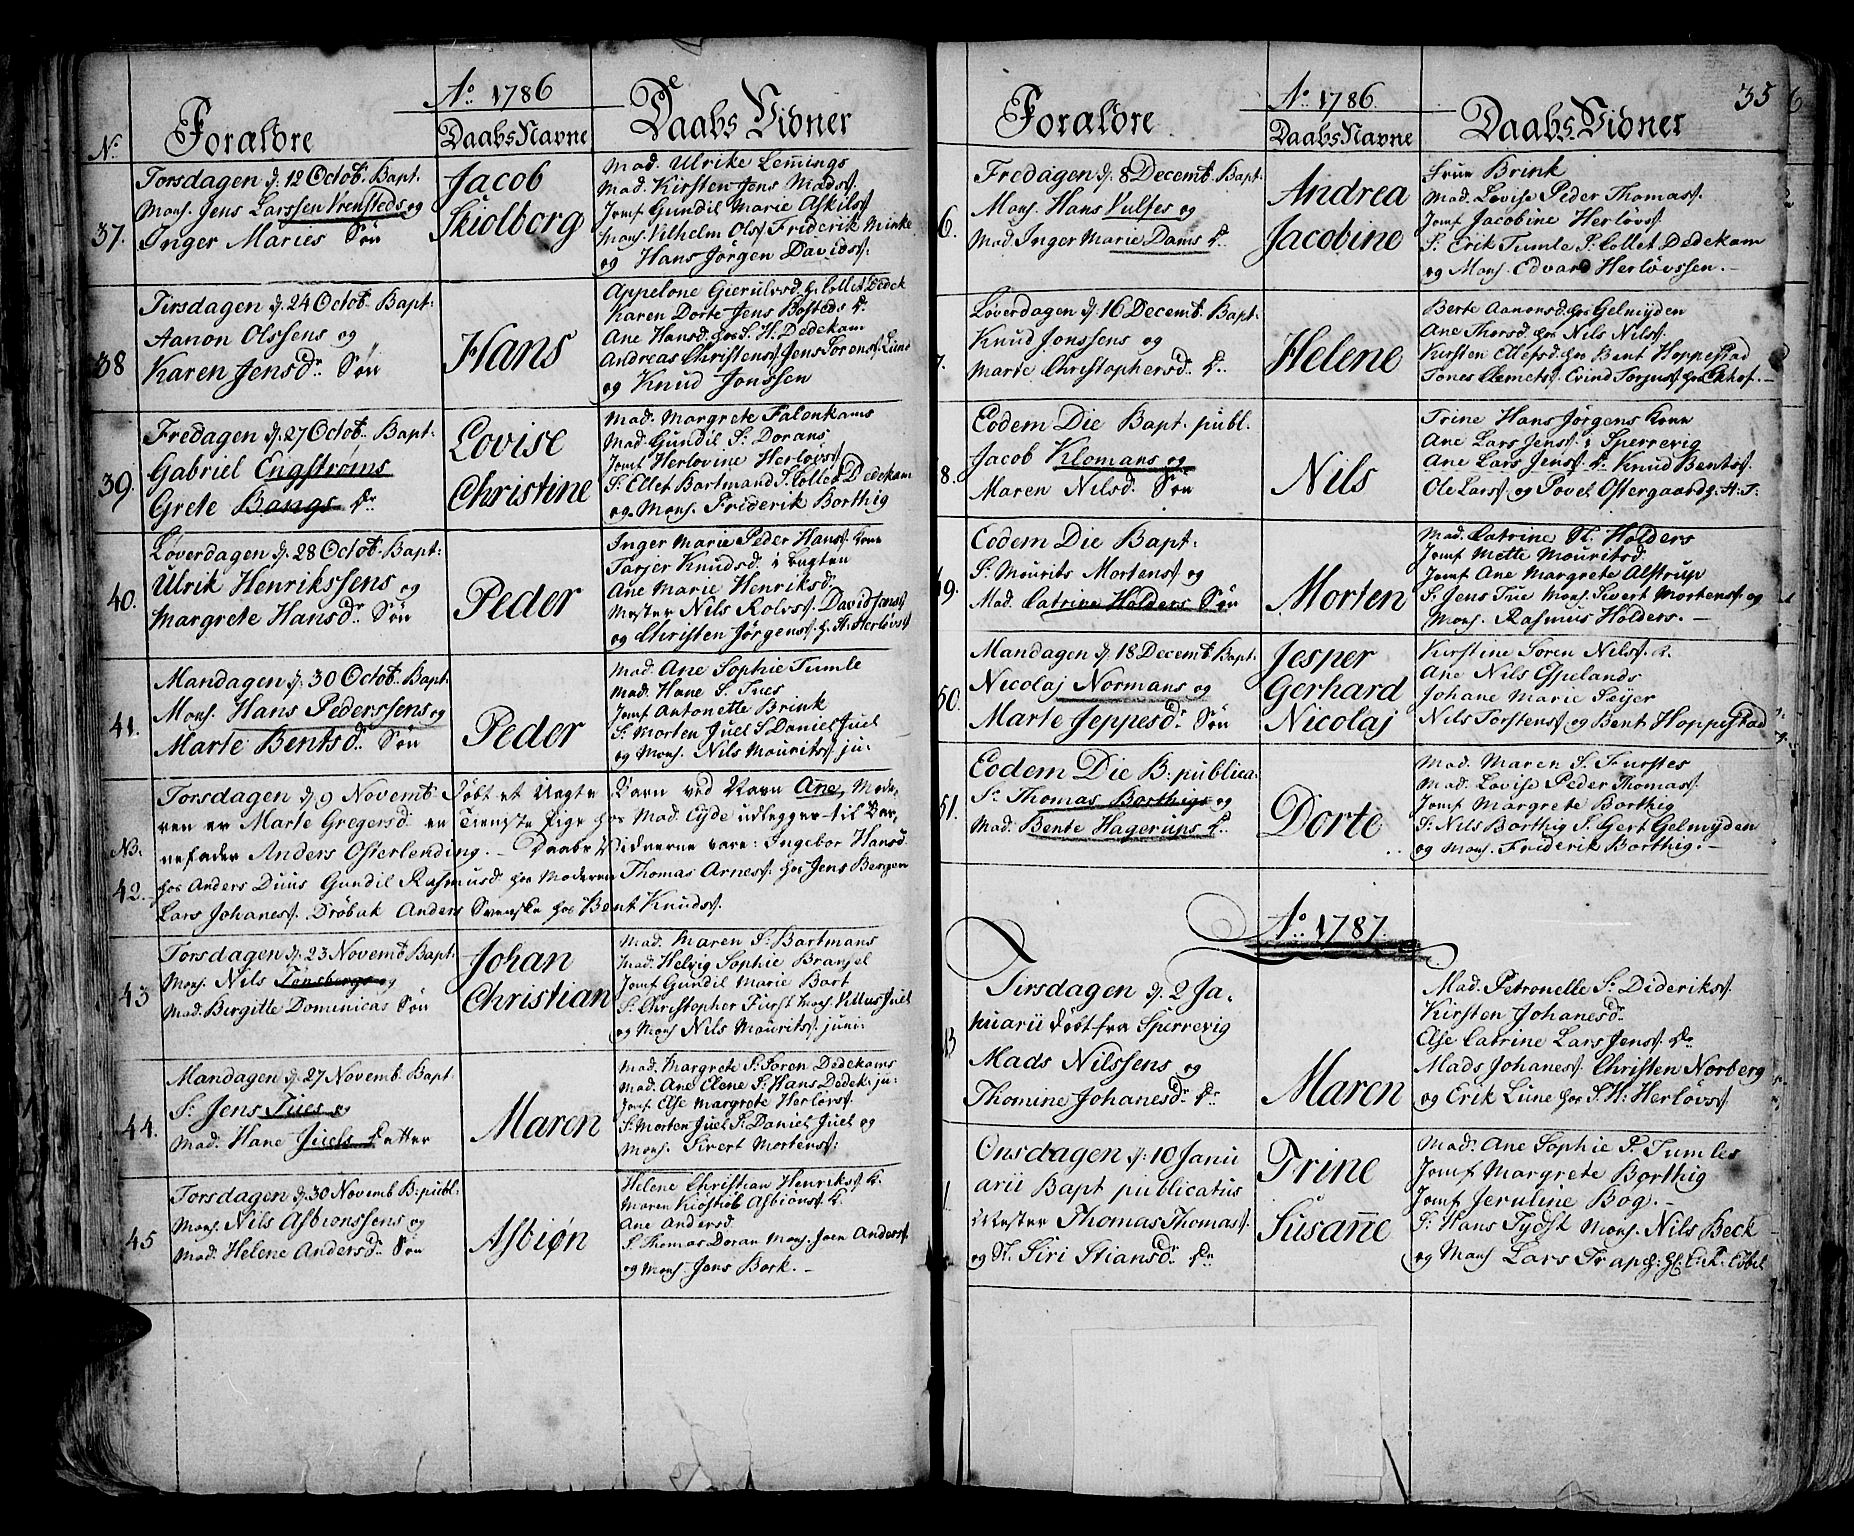 Ao. 1786
No. Forældre DaabsNavne Daabs Vidner
37.
Torsdagen d. 12 Octob. Bapt.
Mons. Jens Larssen Vrensteds og
Inger Maries Søn
Jacob
Skiolborg
Mad. Ulrike Lemings
Mad. Kirsten Jens Mads.
Jomf Gundil Marie Askils.
Mons. Vilhelm Ols. Friderik Minke
og Hans Jörgen Davids.
38
Tirsdagen d. 24 Octob. Bapt:
Aanon Olssens og
Karen Jensd. Søn
Hans
Appelone Gierulvsd. hos Collet Dedek
Karen Dorte Jens Bosteds K.
Ane Hansd. hos S. H. Dedekam
Andreas Christens. Jens Sorens. Lund
og Knud Jonssen
39.
Fredagen d. 27 Octob. Bapt:
Gabriel Engstrøms
Grete Bangs Dr.
Lovise
Christine
Mad. Margrete Falenkams
Mad. Gundil S. Dorans
Jomf Herlovine Herlovs.
S. Ellet Bartmand S. Collet Dedekam
og Mons. Friderik Borthig
40.
Løverdagen d. 28 Octob. Bapt:
Ulrik Henrikssens og
Margrete Hansd. Søn
Peder
Inger Marie Peder Hans. Kone
Tarjer Knudsd. i bugten
Ane Marie Henriksd.
Mester Nils Rolvs. David Jans.
og Christen Jörgens. h. H. Herlovs.
41.
Mandagen d. 30 Octob. Bapt.
Mons. Hans Pederssens og
Marte Bentsd. Søn
Peder
Mad. Ane Sophie Tumle
Mad. Hane S. Tues
Jomf Antonette Brink
S. Morten Juel S. Daniel Juel
og Mons. Nils Mourits. ju:
NB.
42.
Torsdagen d. 9 Novemb. Döbt et Uægte Barn ved Navn Ane, Mode-
ren er Marte Gregersd. en tienste Pige hos Mad. Eyde udlegger til Bar-
nefader Anders Osterlending. Daabs Vidnerne vare: Ingebor Hansd.
hos Anders Duus Gundil Rasmusd. hos Moderen Thomas Arnes. hos Jens Bergen
Lars Johanes. Dröbak Anders Svenske hos Bent Knuds.
43
Torsdagen d. 23 Novemb. Bapt:
Mons. Nils Tönsbergs og
Mad. Birgitte Dominicas Søn
Johan
Christian
Mad. Maren S. Bartmans
Mad. Helvig Sophie Branjel
Jomf Gundil Marie Bart
S. Christopher Fürst Mons. Vettus Juel
og Mons. Nils Mourits. juni:
44.
Mandagen d. 27 Novemb. Bapt:
S. Jens Tues og
Mad. Hane Juels Datter
Maren
Mad. Margrete S. Soren Dedekams
Mad. Ane Elene S. Hans Dedek: ju:
Jomf Else Margrete Herlovs.
S. Morten Juel S. Daniel Juel og
Mons. Sivert Mortens:
45
Torsdagen d. 30 Novemb B: publ:
Mons. Nils Asbionssens og
Mad. Helene Andersd. Søn
Asbiøn
Helene Christian Henriks. K.
Maren Asbions. K.
Ane Andersd
S. Thomas Doran Mons. Joen Anders.
og Mons. Jans Bork.
Ao. 1786. 35
Forældre DaabsNavne Daabs Vidner
6.
Fredagen d. 8 Decemb. Bapt.
Mons. Hans Vulfes og
Mad. Inger Marie Dams Dr.
Andrea
Jacobine
Frue Brink
Mad. Lovise Peder Thomas.
Jomf Jacobine Herlövs.
S. Erik Tumle S. Collet Dedekam
og Mons. Edvard Herlövssen.
7.
Løverdagen d. 16 Decemb. Bapt:
Knud Jonssens og
Marte Christophersd. Dr.
Helene
Berte Aanonsd. hos Gelmyden
Ane Thorsd. hos Nils Nils.
Kirsten Ellefsd. hos Bent Hoppestad
Tones Clemets. Evind Torjus.
8.
Eodem Die Bapt. publ.
Jacob Klomans og
Maren Nilsd. Søn
Nils
Trine Hans Jörgens Kone
Ane Lars Jens. i Sperrevig
Ane Lars Jens. Dr. Knud Bents.
Ole Lars. og Povel Ostergaard
49.
Eodem Die Bapt:
S. Mourits Mortens. og
Mad. Catrine Holders Søn
Morten
Mad. Catrine Holders
Jomf Mette Mouritsd.
Jomf Ane Margrete Alstrup
S. Jens Tue Mons. Sivert Mortens. og
Mons. Rasmus Holders.
50.
Mandagen d. 18 Decemb. Bapt.
Nicolaj Normans og
Marte Jeppesd. Søn
Jesper
Gerhard
Nicolaj
Kirstine Soren Nils. K.
Ane Nils Espelands
Johane Marie Seyer
Nils Torstens. og Bent Hoppestad
51.
Eodem Die B: publica:
S. Thomas Borthigs og
Mad. Bente Hagerups Dr.
Dorte
Mad. Maren S. Furstes
Mad. Lovise Peder Thomas.
Jomf Margrete Borthig
S. Nils Borthig S. Gert Gelmyden
og Mons. Friderik Borthig.
Ao. 1787.
Tirsdagen d. 2 Ja-
nuarii döbt fra Sperrevig
Mads Nilssens og
Thomine Johanesd. Dr.
Maren
Mad. Petronelle S. Dideriks.
Kirsten Johanesd.
Else Catrine Lars Jens. Dr.
Mads Johanes. Christen Norberg
og Erik Lune hos S. H. Herlövs.
Onsdagen d. 10 Janu
arii Bapt publicatus
Mester Thomas Thomas.
og Siri Stiansd. Dr.
Trine
Susanne
Mad. Ane Sophie P. Tumles
Jomf Margrete Borthig
Jomf Jeruline Bog.
S. Hans Tydsk Mons. Nils Beck
og Mons Lars Trap